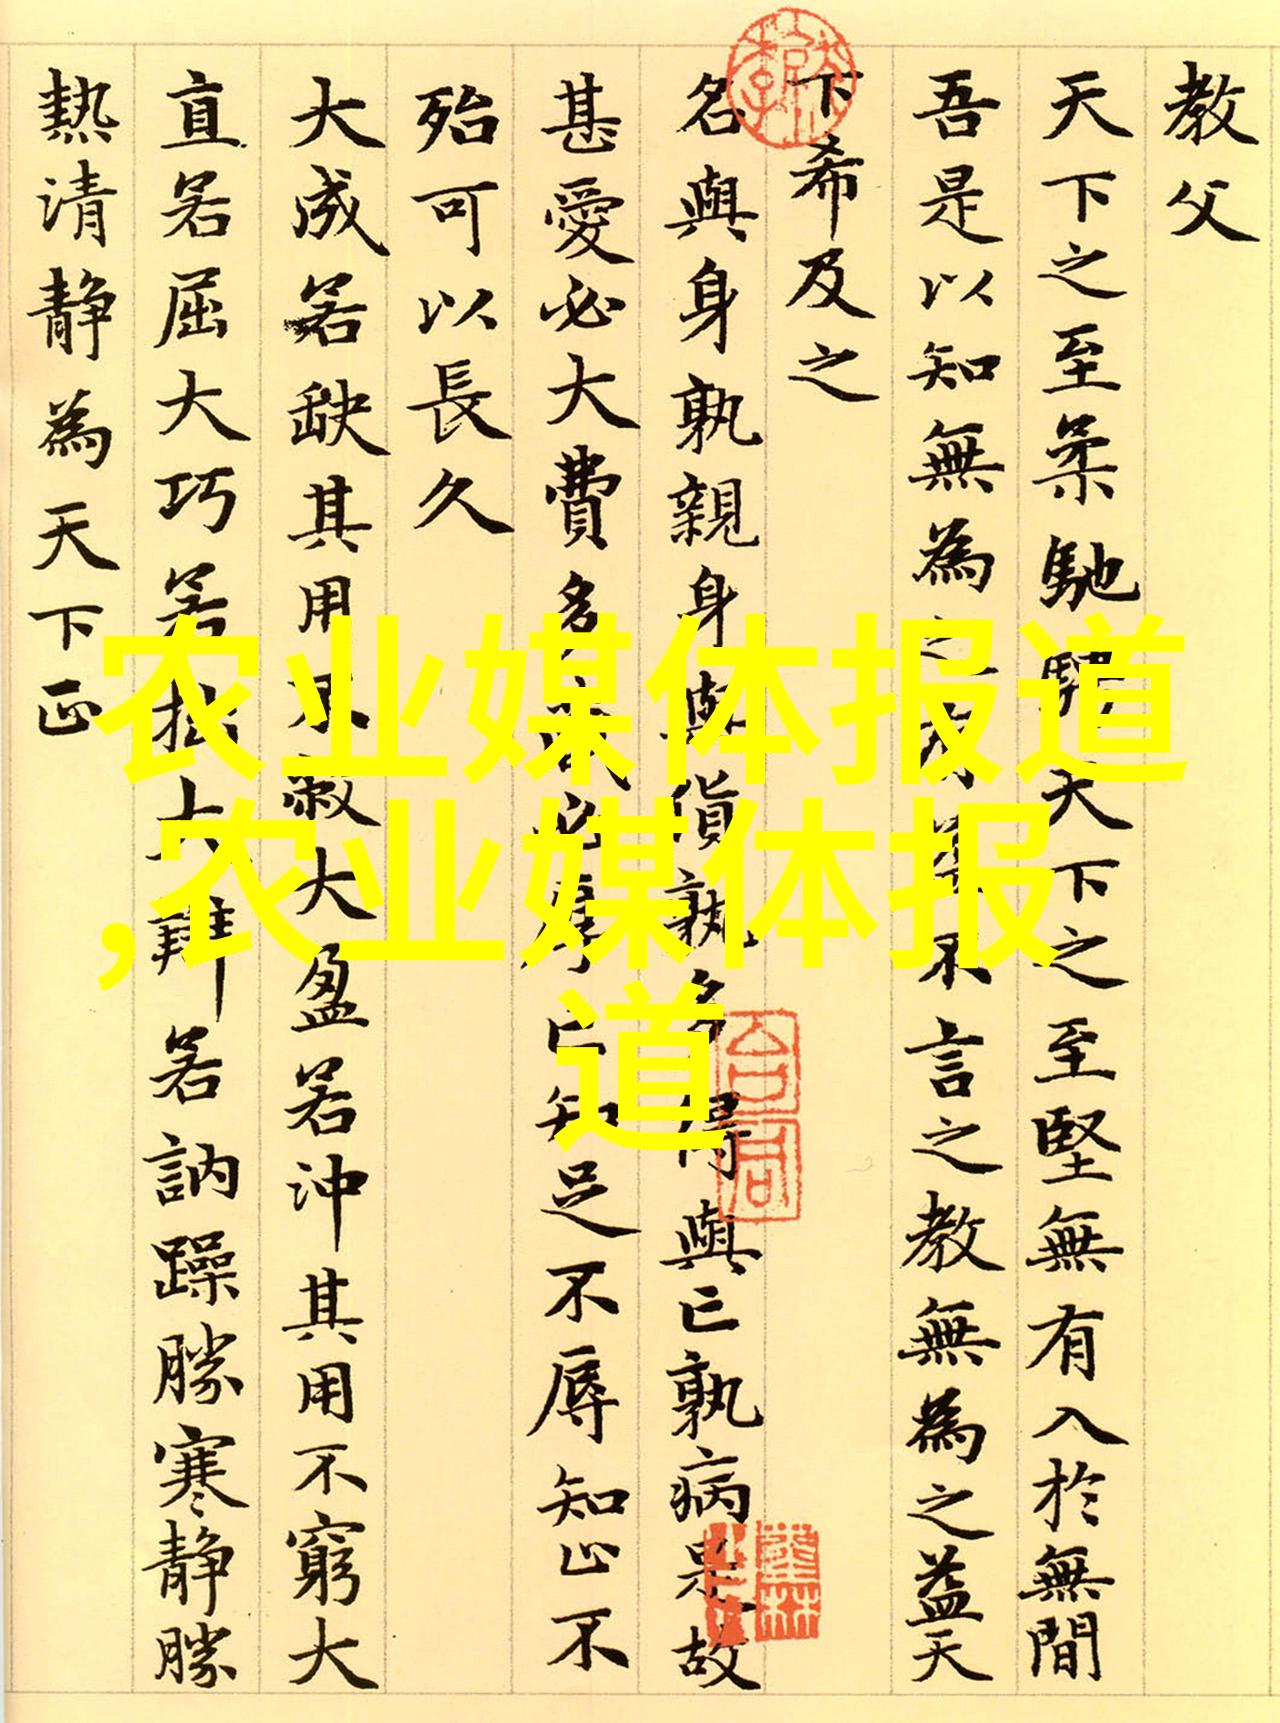 教父
天下之至柔馳騁天下之至堅無有入於無間
吾是以知無為之有益不言之教無為之益天
下希及之
名與身孰親身與貨孰多得與亡孰病是故
甚愛必大費多藏必厚亡知足不辱知止不
殆可以長久
大成若缺其用不敝大盈若沖其用不窮大
直若屈大巧若拙大辯若訥躁勝寒靜勝
熱清靜為天下正
农业媒体报道
,农业媒体报
道